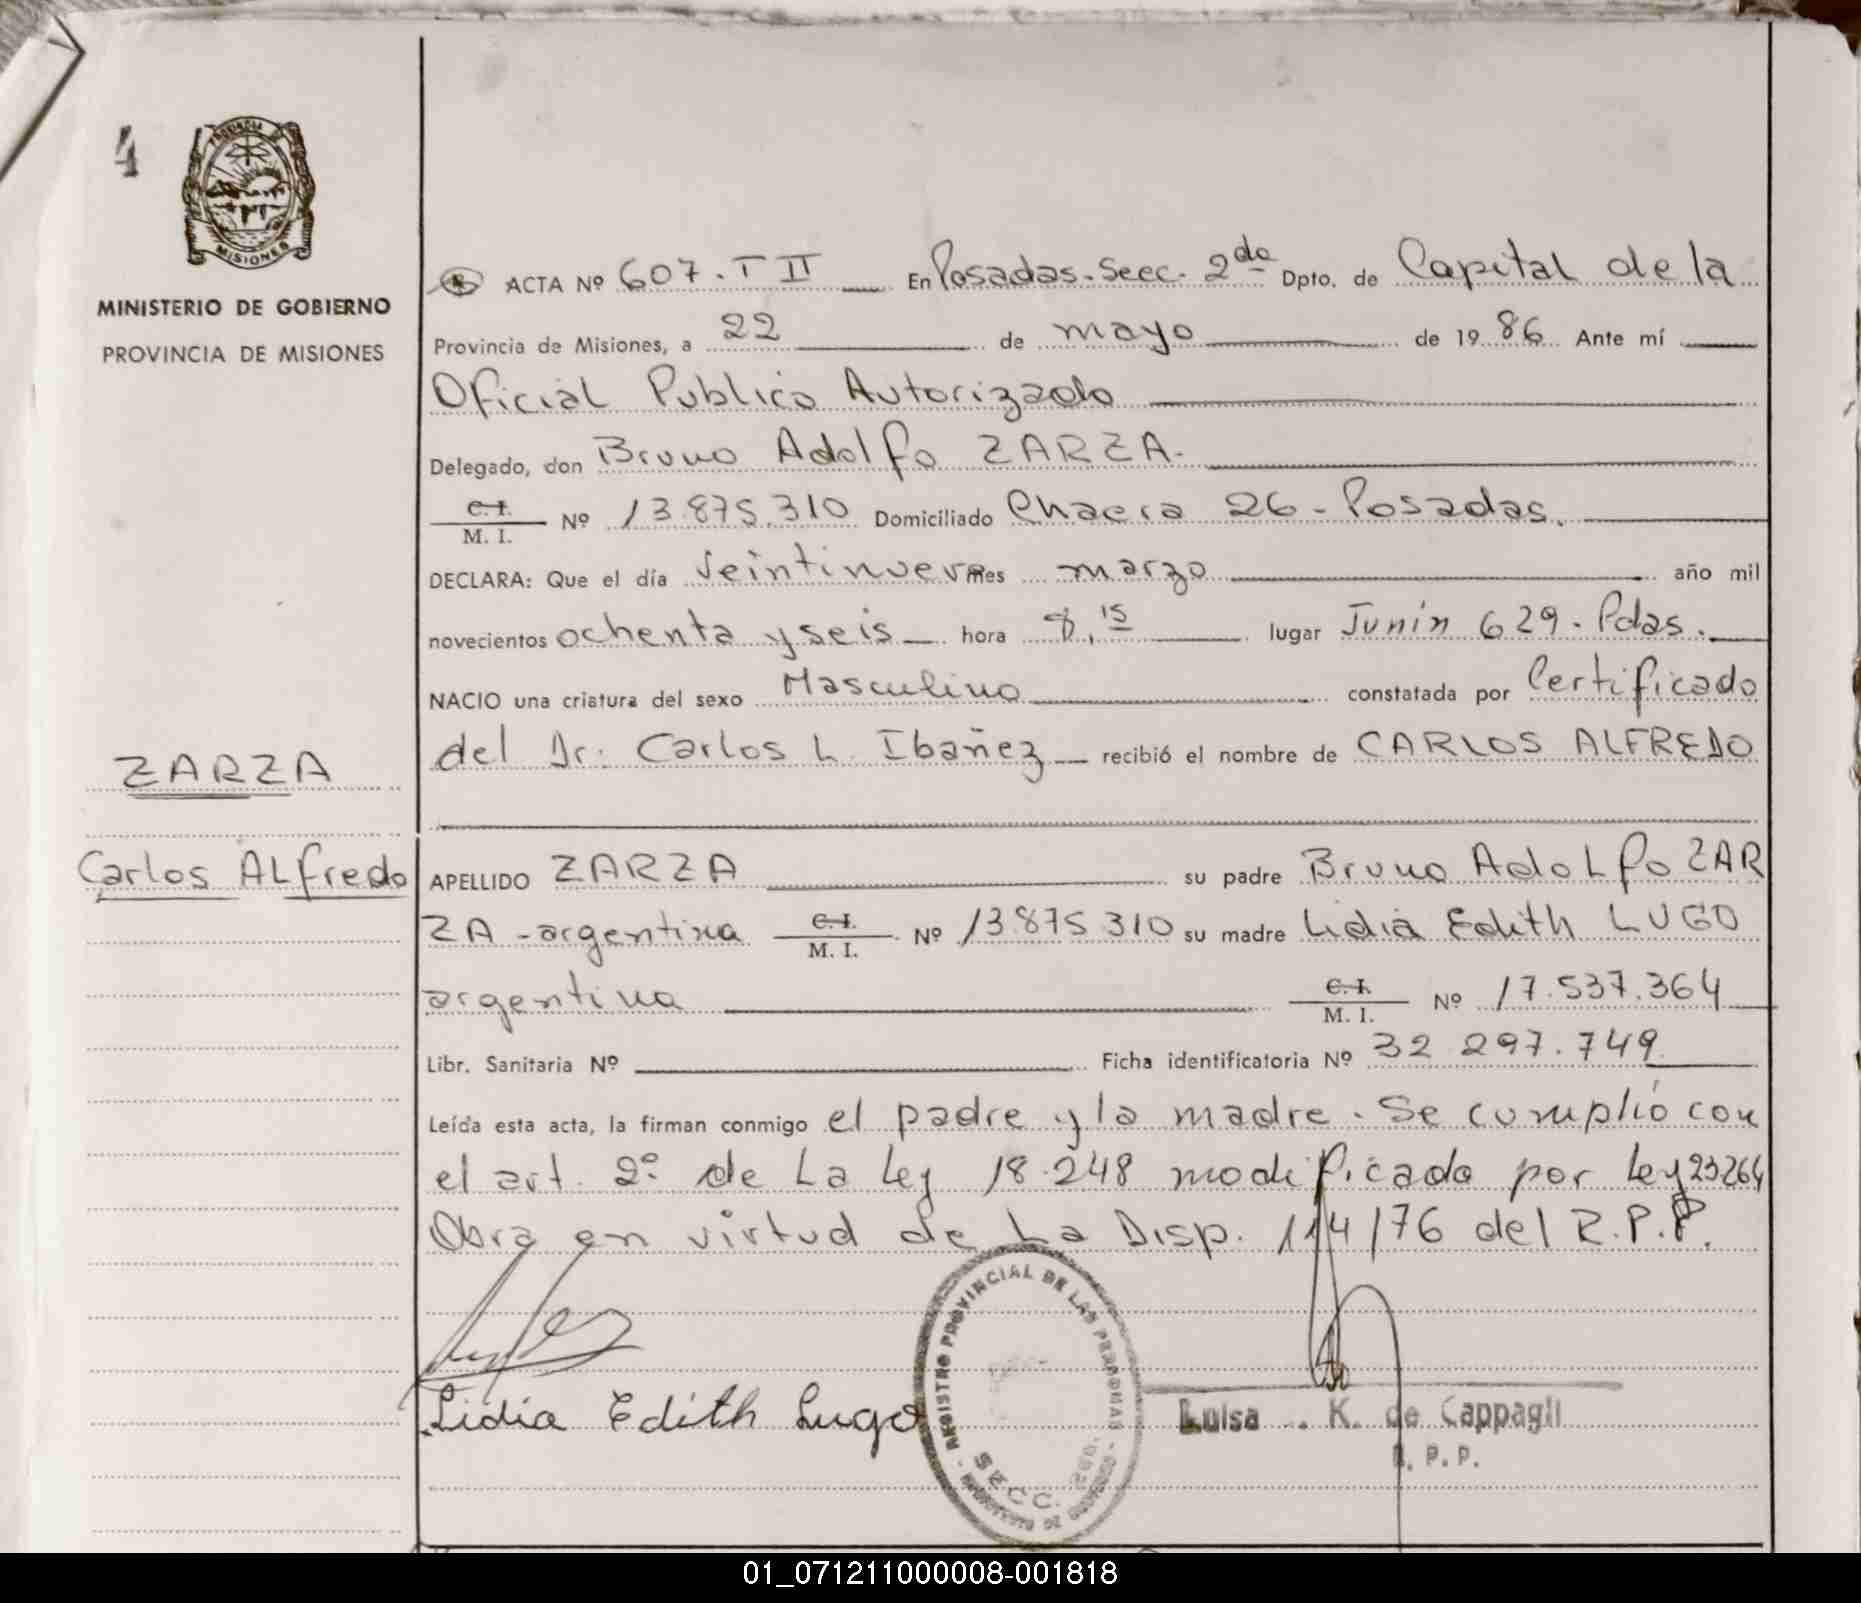 4
PROVINCIA DE
MISIONES
MINISTERIO DE GOBIERNO
PROVINCIA DE MISIONES
ZARZA
Carlos ALfredo
ACTA Nº 607. T II En Posadas. Secc. 2da Dpto. de Capital de la
Provincia de Misiones, a 22 de mayo de 19 86 Ante mí
Oficial Publico Autorizado
Delegado, don Bruno Adolfo ZARZA.
C. I.
M. I. Nº 13.875.310 Domiciliado Chacra 26 - Posadas.
DECLARA: Que el día veintinueve mes marzo año mil
novecientos ochenta y seis hora 8,15 lugar Junín 629. Pdas.
NACIO una criatura del sexo Masculino constatada por Certificado
del Dr. Carlos L. Ibañez recibió el nombre de CARLOS ALFREDO
APELLIDO ZARZA su padre Bruno AdoLfo ZAR
ZA - argentina C. I. M. I. Nº 13.875.310 su madre Lidia Edith LUGO
argentina C. I. M. I. Nº 17.537.364
Libr. Sanitaria Nº Ficha identificatoria Nº 32.297.749
Leída esta acta, la firman conmigo el padre y la madre. Se cumplió con
el art. 2º de La Ley 18.248 modificada por Ley 23264
Obra en virtud de La Disp. 114/76 del R.P.P.
Lidia Edith Lugo
REGISTRO PROVINCIAL DE LAS PERSONAS
SECC. 2DA.
Luisa K. de Cappagli
R. P. P.
01_071211000008-001818